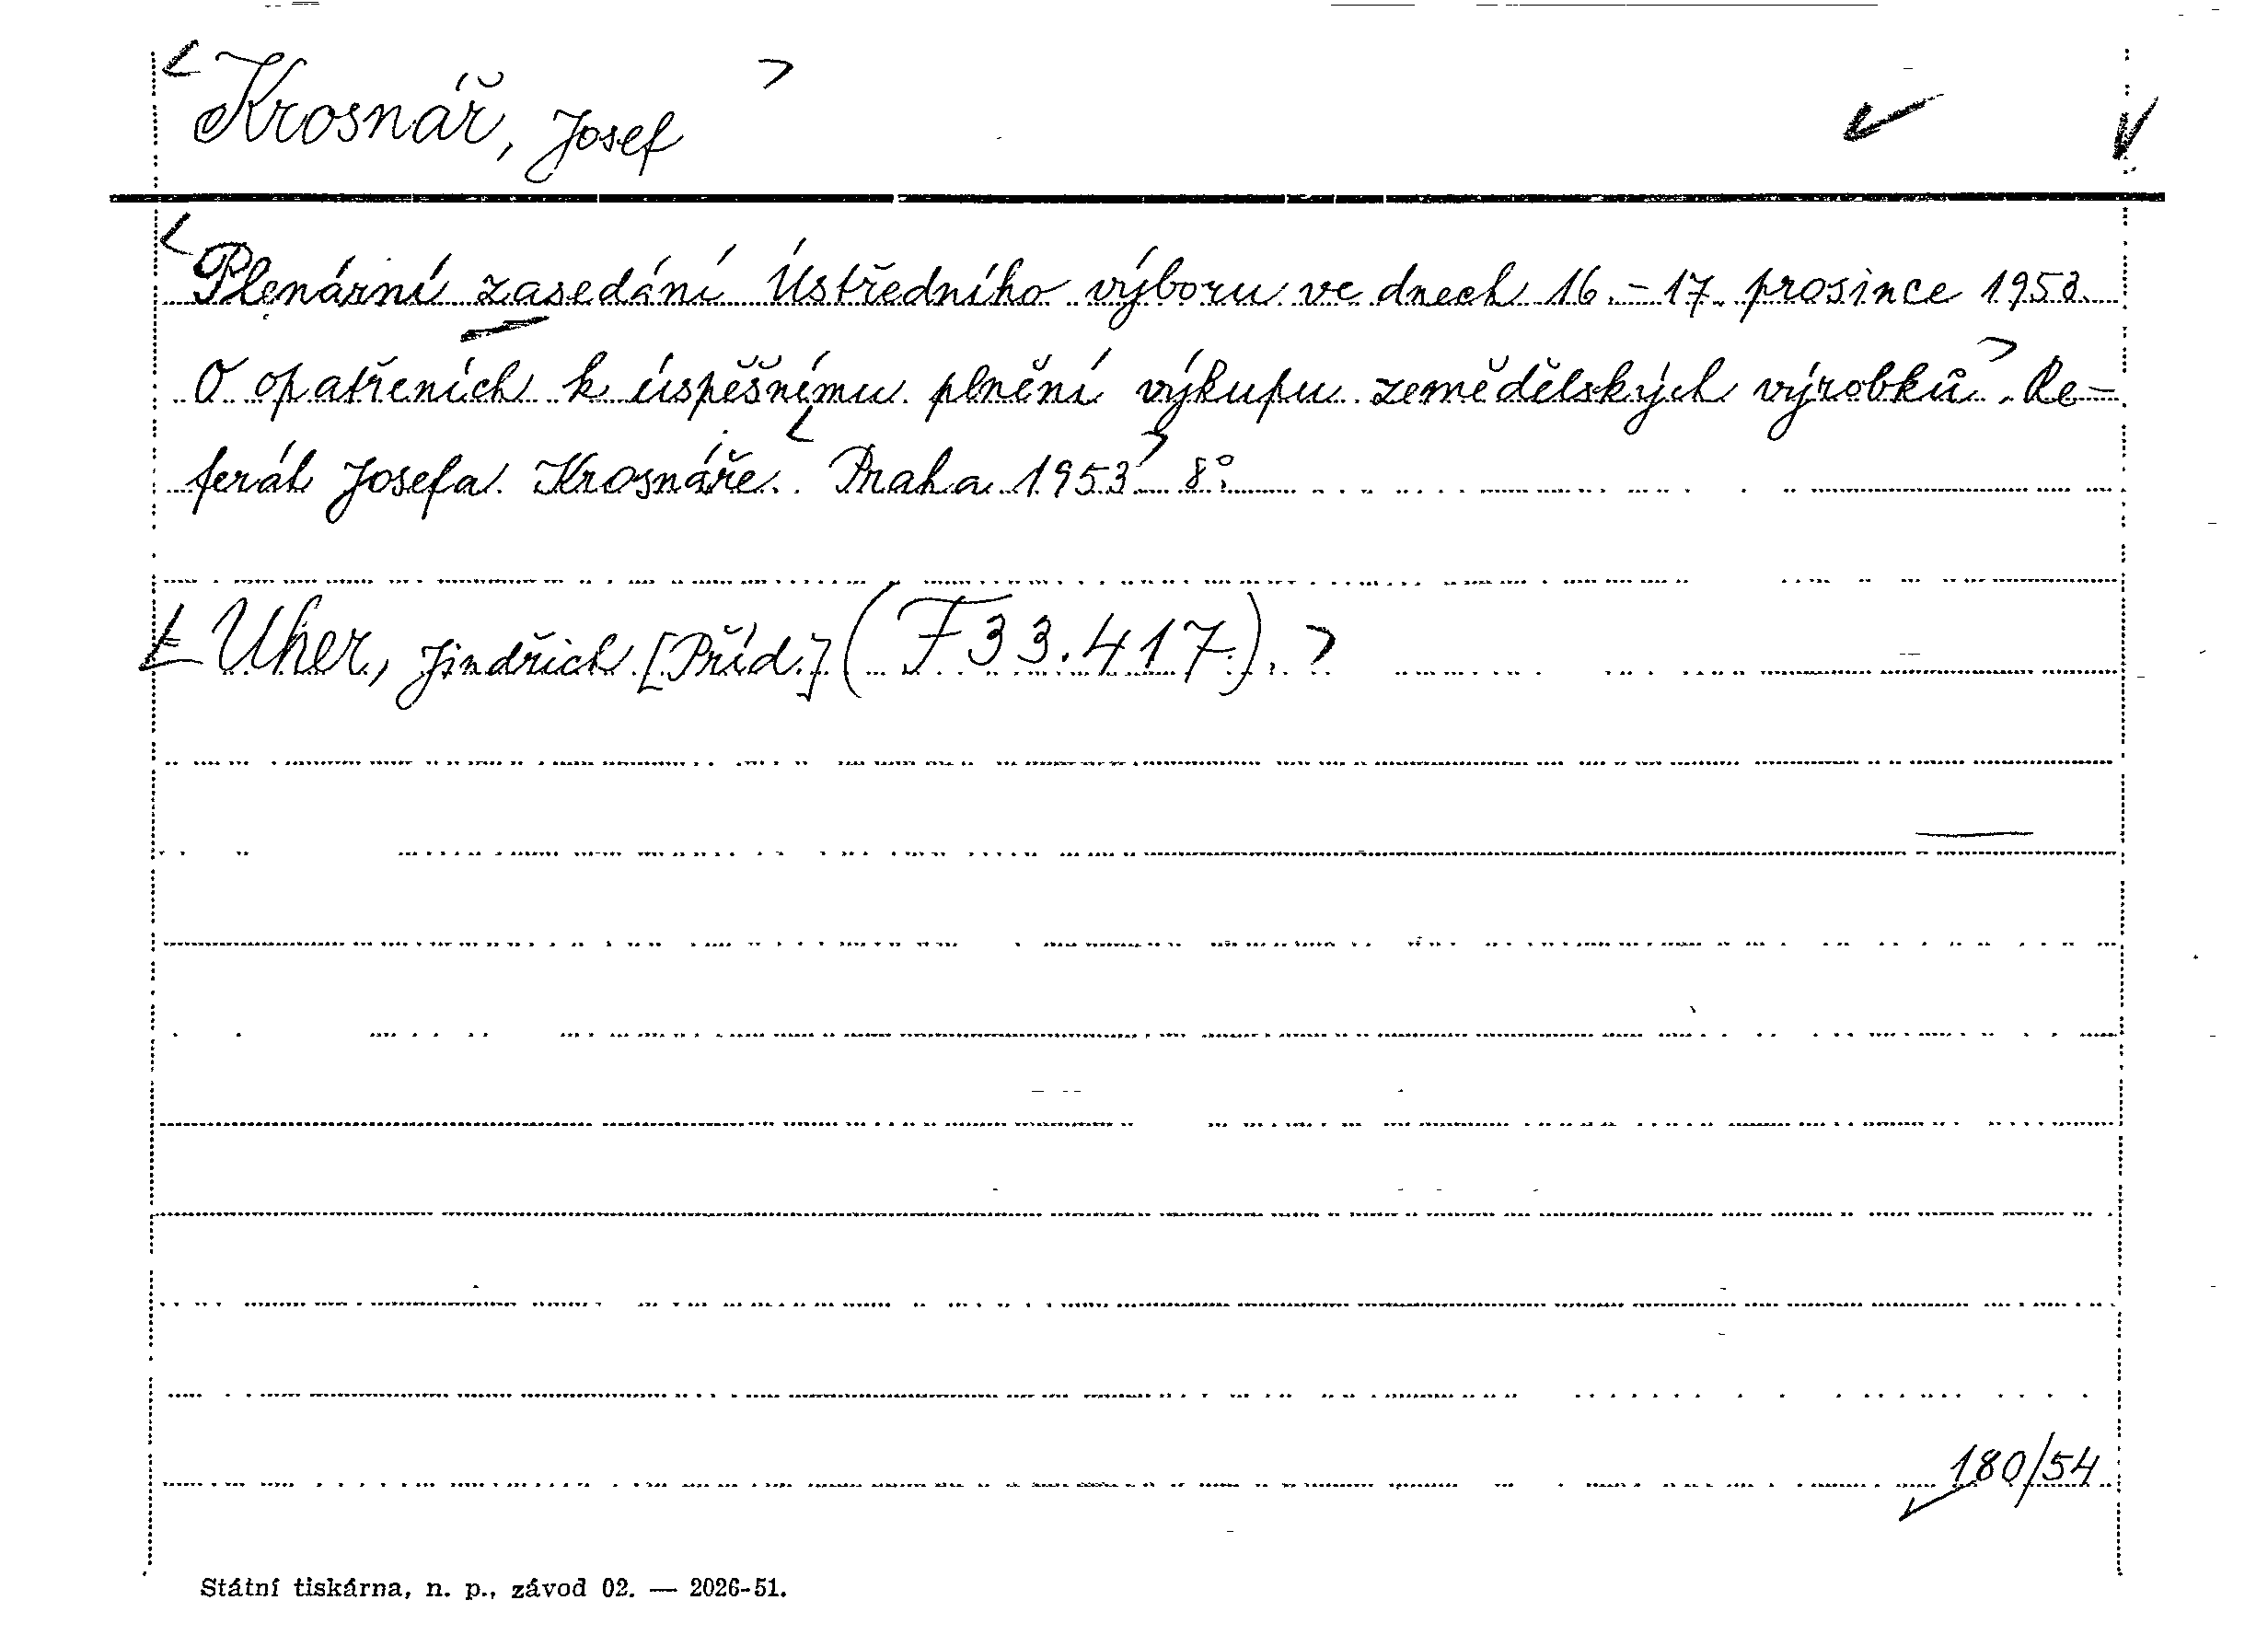 Krosnář, Josef
Plenární zasedání Ústředního výboru ve dnech 16.-17. prosince 1953.
O opatřeních k úspěšnímu plnění výkupu zemědělských výrobků. Re-
ferát Josefa Krosnáře. Praha 1953 8°.
Uher, Jindřich [Příd.] (F 33.417).
180/54
Státní tiskárna, n. p., závod 02. — 2026-51.